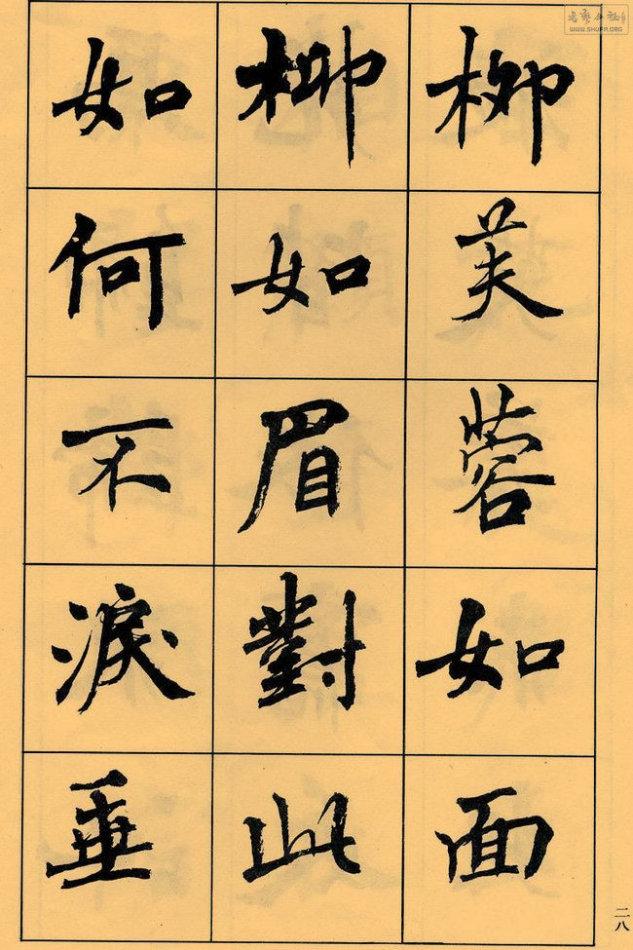 柳芙蓉如面
柳如眉對此
如何不淚垂
二八
WWW.SHUFA.ORG